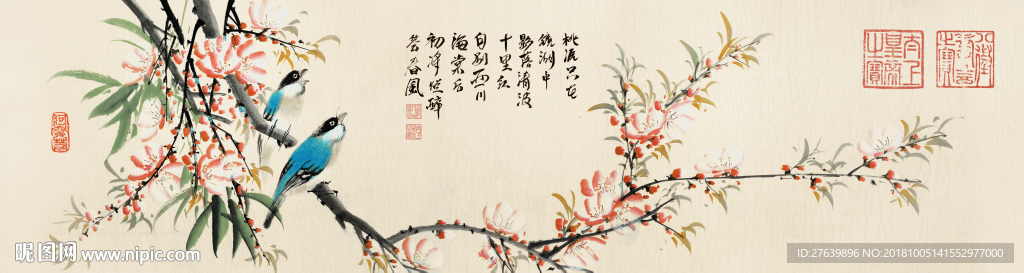 桃源只在
鏡湖中
影落清波
十里红
自别西川
海棠后
初將烂醉
答春風
太上皇帝之寶
八徵耄念之寶
昵图网 www.nipic.com
ID:27639896 NO:20181005141552977000